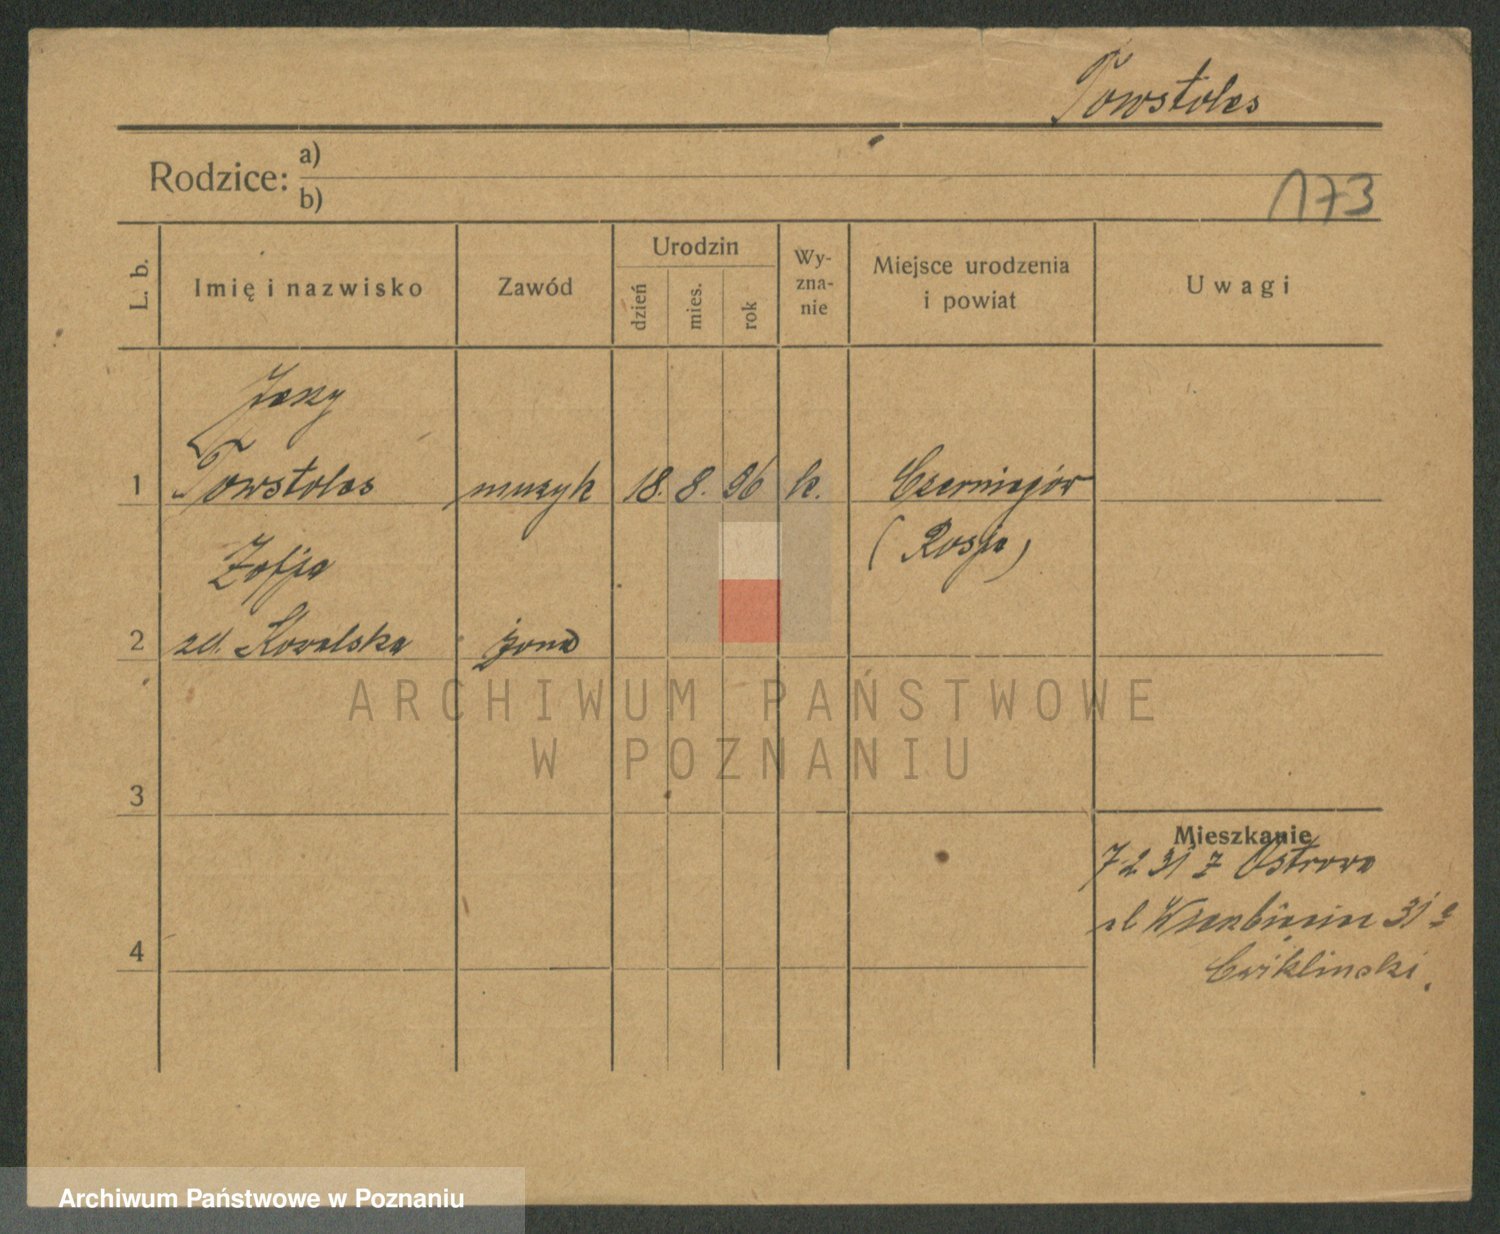 Towstoles
Rodzice: a)
b)
173
L. b. Imię i nazwisko Zawód Urodzin dzień mies. rok Wy-zna-nie Miejsce urodzenia i powiat Uwagi
Jerzy
1 Towstoles muzyk 18. 8. 96 k. Czerniegów
(Rosja)
Zofja
2 zd. Kowalska żona
3
Mieszkanie
7 2 31 z Ostrowa
ul 31
4
Ćwikliński.
ARCHIWUM PAŃSTWOWE
W POZNANIU
Archiwum Państwowe w Poznaniu